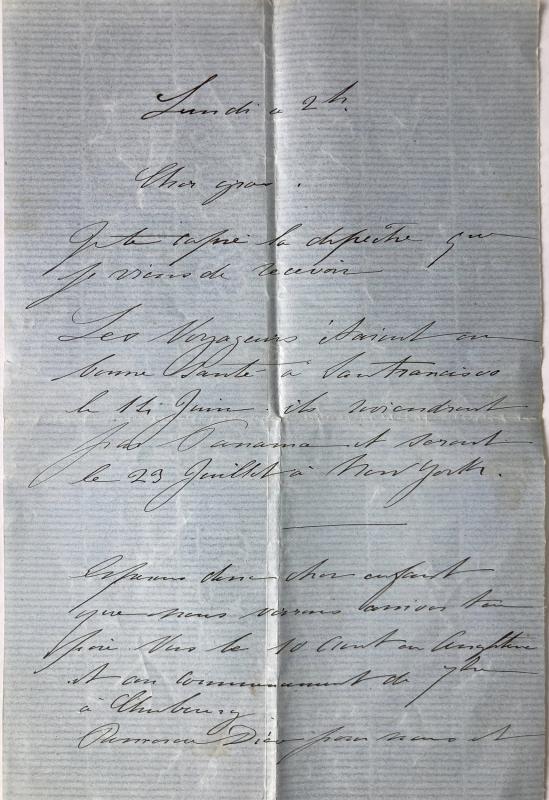 Lundi a 2h.
Cher gros.
Je te copie la depêche que
je viens de recevoir
Les Voyageurs étaient en
bonne Santé à Sanfrancisco
le 14 Juin. ils reviendront
par Panama et seront
le 23 Juillet à New York.
Esperons donc cher enfant
que nous verrons arriver ton
père Vers le 10 Aout en Angleterre
et au commencement de 7bre
à Cherbourg.
Remercie Dieu pour nous et